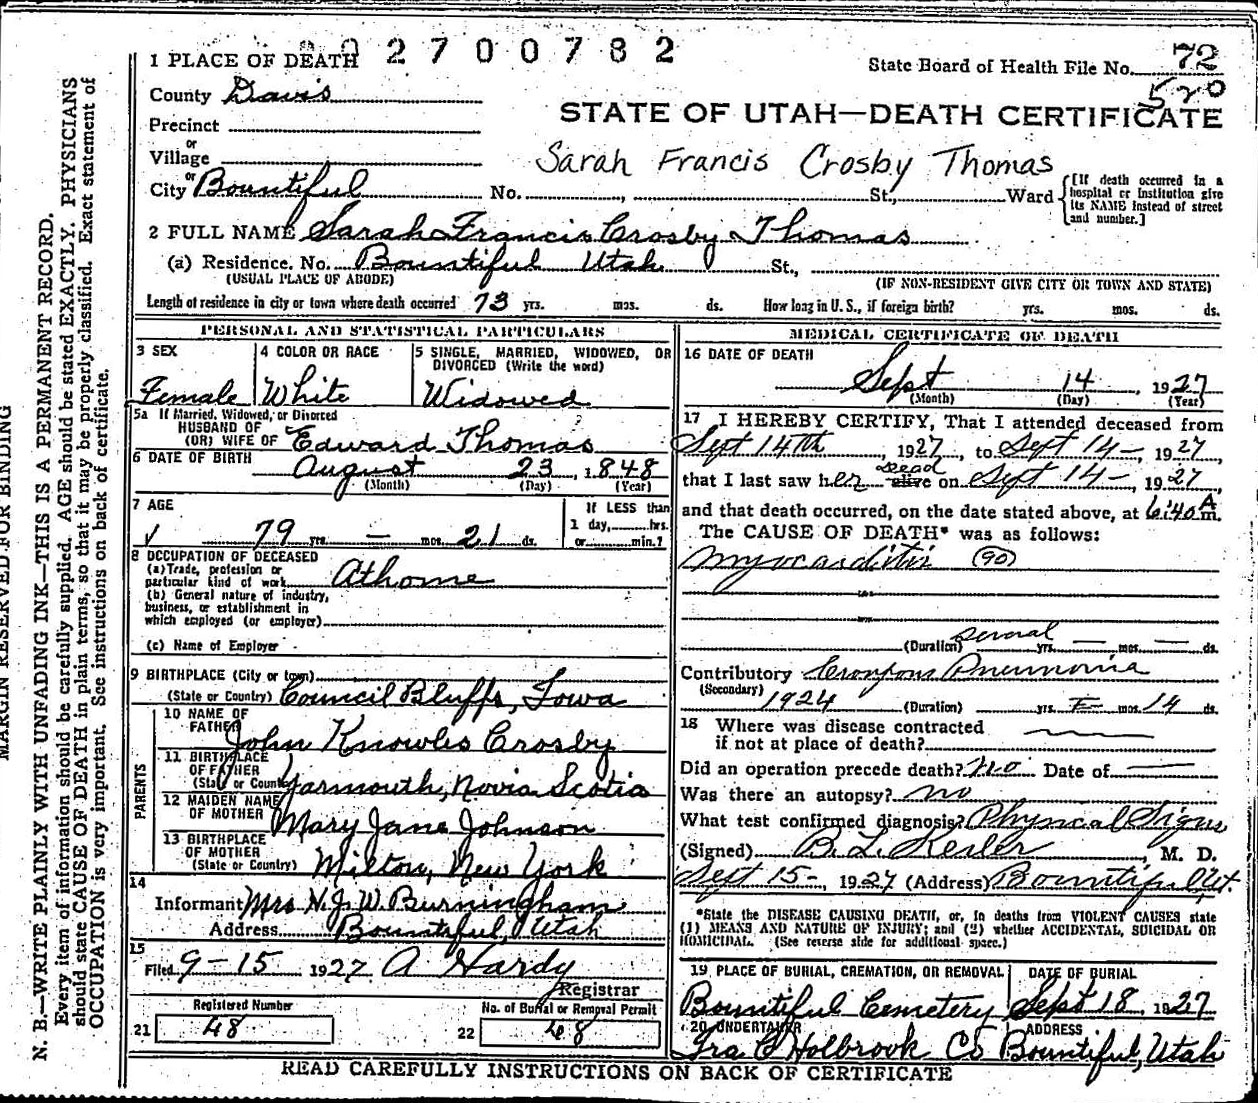 2700782
1 PLACE OF DEATH
State Board of Health File No. 72
520
County Davis
STATE OF UTAH—DEATH CERTIFICATE
Precinct
or
Village
Sarah Francis Crosby Thomas
or
City Bountiful No. , St., Ward
[If death occurred in a hospital or institution give its NAME instead of street and number.]
2 FULL NAME Sarah Francis Crosby Thomas
(a) Residence. No. Bountiful Utah St.,
(USUAL PLACE OF ABODE) (IF NON-RESIDENT GIVE CITY OR TOWN AND STATE)
Length of residence in city or town where death occurred 73 yrs. mos. ds. How long in U. S., if foreign birth? yrs. mos. ds.
PERSONAL AND STATISTICAL PARTICULARS
3 SEX
Female
4 COLOR OR RACE
White
5 SINGLE, MARRIED, WIDOWED, OR DIVORCED (Write the word)
Widowed
5a If Married, Widowed, or Divorced
HUSBAND OF
(OR) WIFE OF Edward Thomas
6 DATE OF BIRTH August 23, 1848
(Month) (Day) (Year)
7 AGE
79 yrs. — mos. 21 ds.
If LESS than
1 day, hrs.
or min.?
8 OCCUPATION OF DECEASED
(a) Trade, profession or
particular kind of work At home
(b) General nature of industry,
business, or establishment in
which employed (or employer)
(c) Name of Employer
9 BIRTHPLACE (City or town)
(State or Country) Council Bluffs, Iowa
PARENTS
10 NAME OF
FATHER John Knowles Crosby
11 BIRTHPLACE
OF FATHER
(State or Country) Yarmouth, Novia Scotia
12 MAIDEN NAME
OF MOTHER Mary Jane Johnson
13 BIRTHPLACE
OF MOTHER
(State or Country) Milton, New York
14
Informant Mrs N. J. W. Burningham
Address Bountiful, Utah
15
Filed 9-15 1927 A Hardy
Registrar
Registered Number
21 48
No. of Burial or Removal Permit
22 48
MEDICAL CERTIFICATE OF DEATH
16 DATE OF DEATH
Sept 14 1927
(Month) (Day) (Year)
17 I HEREBY CERTIFY, That I attended deceased from
Sept 14th, 1927, to Sept 14-, 1927,
dead
that I last saw her alive on Sept 14-, 1927,
and that death occurred, on the date stated above, at 6:40 A m.
The CAUSE OF DEATH* was as follows:
Myocarditis (90)
(Duration) several yrs. — mos. — ds.
Contributory Croupous Pneumonia
(Secondary) 1924 (Duration) yrs. mos. 14 ds.
18 Where was disease contracted
if not at place of death?
Did an operation precede death? no Date of —
Was there an autopsy? no
What test confirmed diagnosis? Physical Signs
(Signed) B. L. Kesler, M. D.
Sept 15-, 1927 (Address) Bountiful, Ut.
*State the DISEASE CAUSING DEATH, or, in deaths from VIOLENT CAUSES state
(1) MEANS AND NATURE OF INJURY; and (2) whether ACCIDENTAL, SUICIDAL OR
HOMICIDAL. (See reverse side for additional space.)
19 PLACE OF BURIAL, CREMATION, OR REMOVAL
Bountiful Cemetery
DATE OF BURIAL
Sept 18, 1927
20 UNDERTAKER
Ira C Holbrook Co
ADDRESS
Bountiful, Utah
READ CAREFULLY INSTRUCTIONS ON BACK OF CERTIFICATE
MARGIN RESERVED FOR BINDING
N. B.—WRITE PLAINLY WITH UNFADING INK—THIS IS A PERMANENT RECORD.
Every item of information should be carefully supplied. AGE should be stated EXACTLY. PHYSICIANS
should state CAUSE OF DEATH in plain terms, so that it may be properly classified. Exact statement of
OCCUPATION is very important. See instructions on back of certificate.